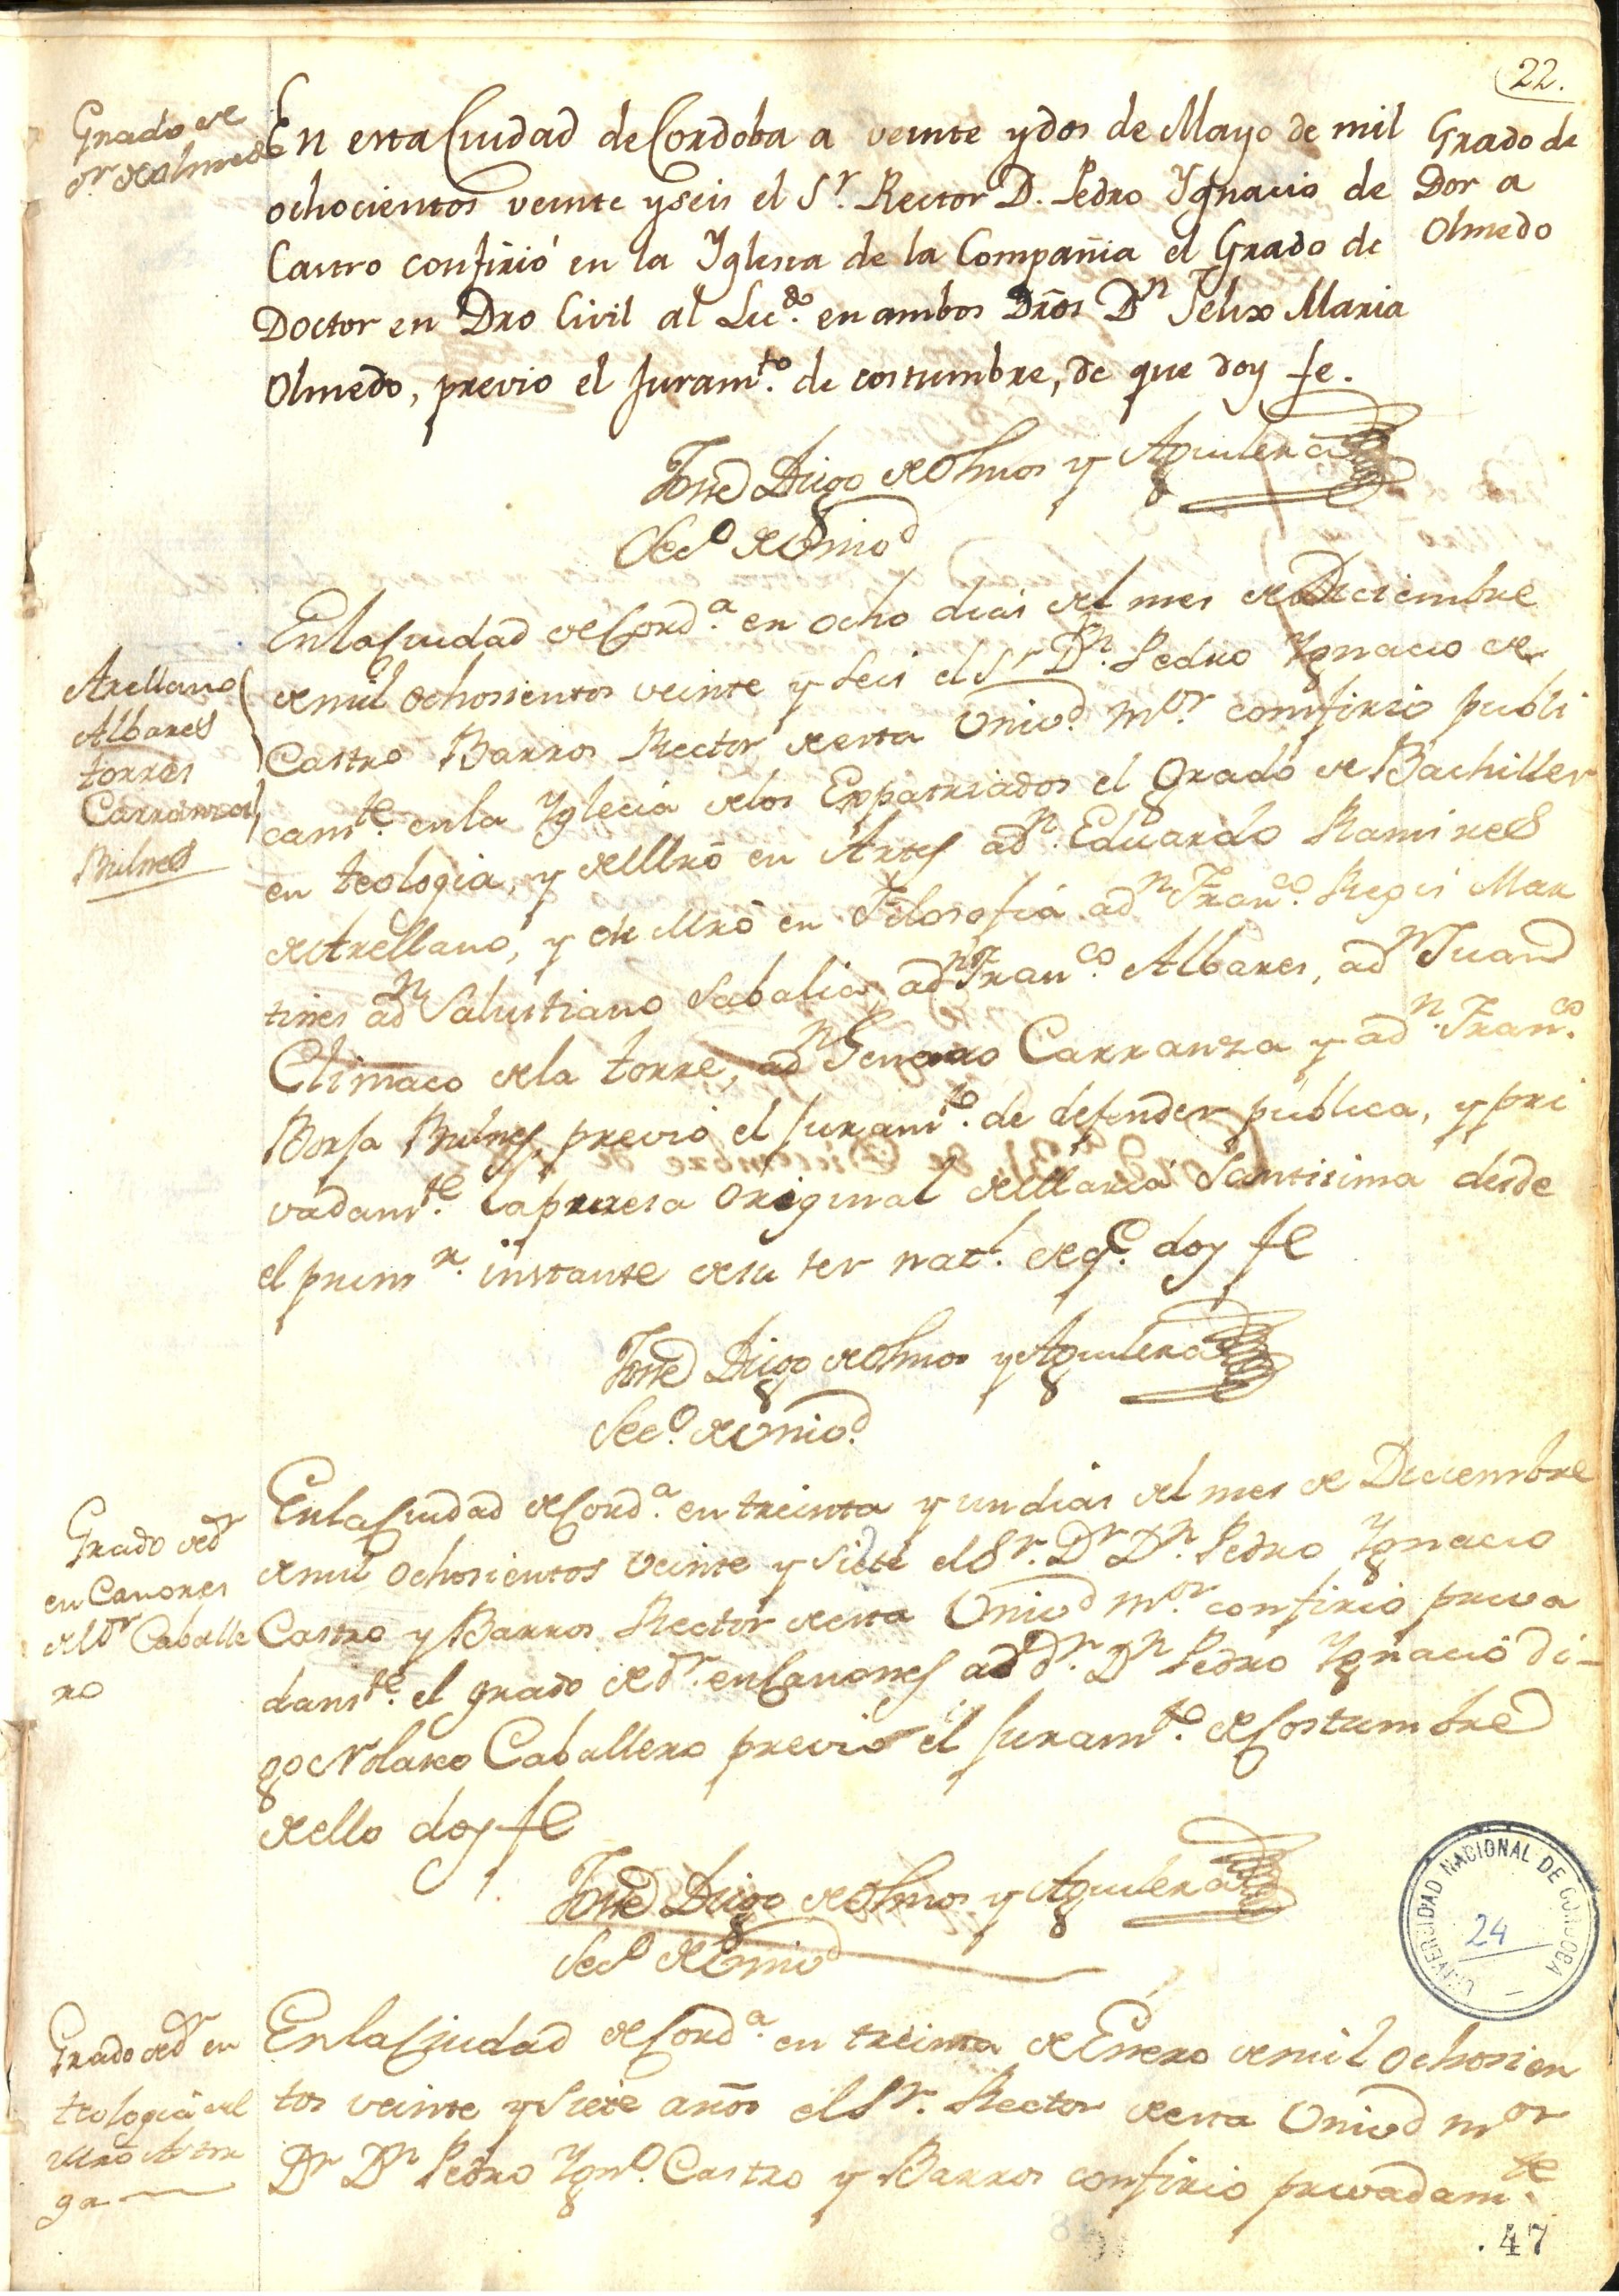 22.
Grado de
Dr. de Olmedo
En esta Ciudad de Cordoba a veinte y dos de Mayo de mil
ochocientos veinte y seis el Sr. Rector D. Pedro Ygnacio de
Castro confirió en la Yglesia de la Compañia el Grado de
Doctor en Dro Civil al Licdo. en ambos Dr̃os Dn Felix Maria
Olmedo, previo el Juramto. de costumbre, de que doy fe.
Grado de
Dor a
Olmedo
José Diego de Olmos y Aguilera
Seco de Univd
Arellano
Albares
torres
Carranza
Bulnes
En la Ciudad de Corda. en ocho dias del mes de Diciembre
de mil ochosientos veinte y seis el Sr Dn. Pedro Ygnacio de
Castro Barros Rector de esta Univd. mor. comfirio publi
camte. en la Yglecia de los Expatriados el Grado de Bachiller
en teologia, y de Mrõ en Artes a dn. Eduardo Ramires
de Arellano, y de Mrõ en Filosofia a dn Franco. Regis Mar
tines a dn Salustiano Sabalia, a dn Franco. Albares, a dn Juan
Climaco de la torre, a dn Genaro Carranza y a dn. Franco.
Borja Bulnes, previo el juramto. de defender publica, y pri
vadamte. la puresa original de Maria Santisima desde
el primr. instante de su ser natl. de qe. doy fe
José Diego de Olmos y Aguilera
Seco. de Univd.
Grado de dr
en Canones
del Dr Caballe
ro
En la Ciudad de Corda. en treinta y un dias del mes de Diciembre
de mil ochosientos veinte y siete el Sr. Dr Dn. Pedro Ygnacio
Castro y Barros Rector de esta Univd mor confirio priva
damte. el grado de dr. en Canones a dr. Dn Pedro Ygnacio di-
go Nolasco Caballero previo el juramto. de Costumbre
de ello doy fe
José Diego de Olmos y Aguilera
Seco de Univd
UNIVERSIDAD NACIONAL DE CORDOBA
24
Grado de dr en
teologia del
Mrõ Astor
ga
En la Ciudad de Corda. en treinta de Enero de mil ochosien
tos veinte y siete años el Sr. Rector de esta Univd mor
Dr Dn Pedro Ygno. Castro y Barros confirio privadamte.
.47